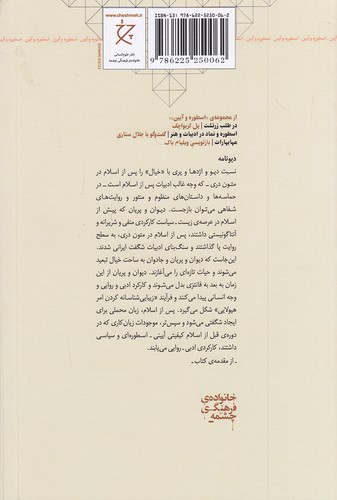 www.cheshmeh.ir
نشر علوم‌انسانی
خانواده‌ی فرهنگی چشمه
ISBN-13: 978-622-5250-06-2
9 786225 250062
از مجموعه‌ی «اسطوره و آیین»:
در طلب زرتشت | پل کریواچک
اسطوره و نماد در ادبیات و هنر | گفت‌وگو با جلال ستاری
مهابهارات | بازنویسی ویلیام باک
دیونامه
نسبت دیو و اژدها و پری با «خیال» را پس از اسلام در
متون دری ــ که وجه غالب ادبیات پس از اسلام است ــ در
حماسه‌ها و داستان‌های منظوم و منثور و روایت‌های
شفاهی می‌توان بازجست. دیوان و پریان که پیش از
اسلام در عرصه‌ی زیست ــ سیاست کارکردی منفی و شریرانه و
آنتاگونیستی داشتند، پس از اسلام در متون دری، به سطح
روایت پا گذاشتند و سنگ‌بنای ادبیات شگفت ایرانی شدند.
این‌جاست که دیوان و پریان و جادوان به ساحت خیال تبعید
می‌شوند و حیات تازه‌ای را می‌آغازند. دیوان و پریان از این
زمان به بعد به فانتزی بدل می‌شوند و کارکرد ادبی و روایی و
وجه انسانی پیدا می‌کنند و فرآیند «زیبایی‌شناسانه کردن امر
هیولایی» شکل می‌گیرد. پس از اسلام، زبان محملی برای
ایجاد شگفتی می‌شود و سپس‌تر، موجودات زیان‌کاری که در
دوره‌ی قبل از اسلام کیفیتی آیینی ــ اسطوره‌ای و سیاسی
داشتند، کارکردی ادبی ــ روایی می‌یابند.
ــ از مقدمه‌ی کتاب ــ
خانواده‌ی
فرهنگی
چشمه